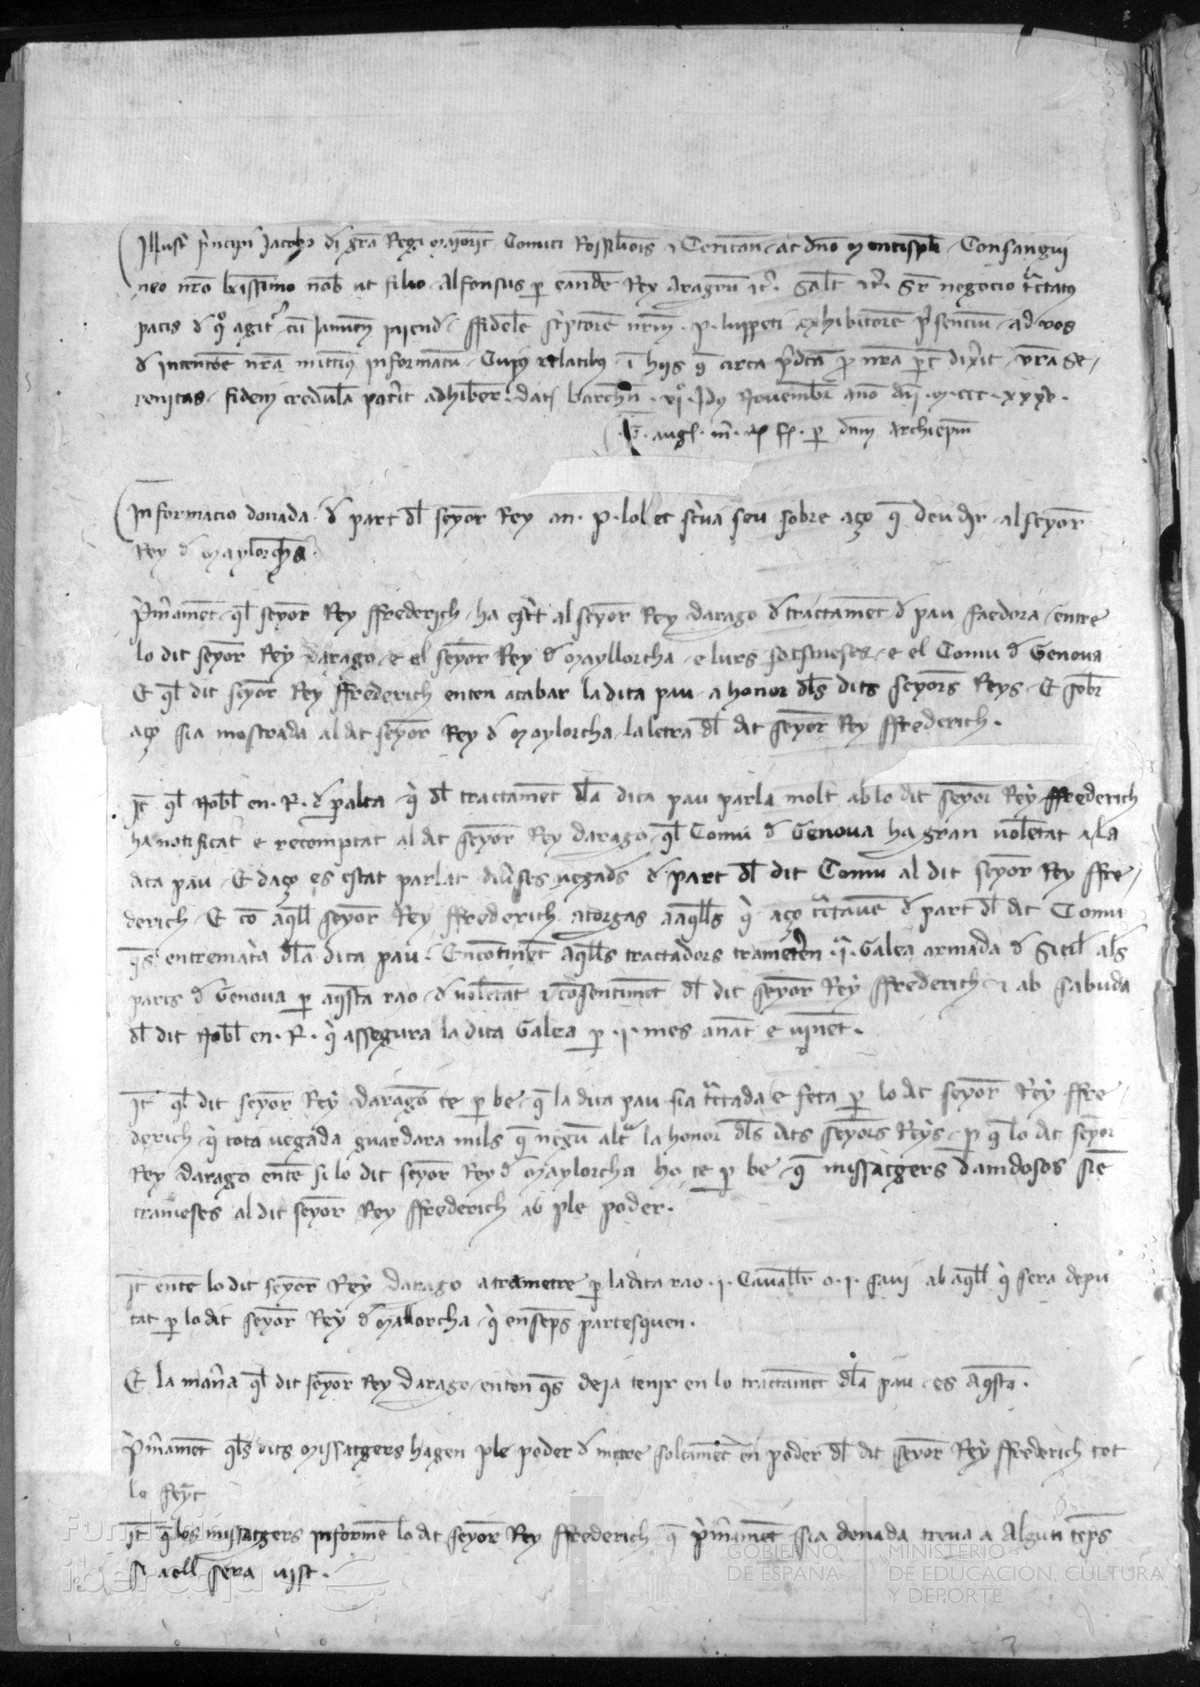 Illust' p'ncipi Jacobo di gra Regi Maioric Comiti Rossilionis & Ceritan ac dno Montispli Consangui
neo nro kmo nob ut filio Alfonsus p eande Rex Aragonu etc. Salt etc. Sr negocio tctatus
pacis d quo agit' cu Januen fidele sc'ptore nrm P. luppeti exhibitore p'senciu ad vos
d intencoe nra mittim' informatu Cui' relatib' i hiis q circa p'dca p nra pt dix'it vra Se
renitas fidem credula pot'it adhiber. Dat Barchn VIº Id' Novembr anno dni M CCC XXXV
p dnm Archiepm
Informacio donada d part dl seyor Rey an P. lobet sc'va seu sobre aço q deu dir al seyor
Rey d Maylorcha.
P'mament ql seyor Rey ffrederich ha esc't al seyor Rey darago d tractament d pau faedora entre
lo dit seyor Rey darago e el seyor Rey d Mayllorcha e lurs sotsmeses e el Comu d Genova
E ql dit seyor Rey ffrederich enten acabar la dita pau a honor dls dits seyors Reys E sobr
aço sia mostrada al dit seyor Rey d Maylorcha la letra dl dit seyor Rey ffrederich.
It ql Nobl en R. d palta q' dl tractament dla dita pau parla molt ab lo dit seyor Rey ffrederich
ha notificat e recomptat al dit seyor Rey darago ql Comu d Genova ha gran volentat a la
dita pau E daço es estat parlat div'ses vegads d part dl dit Comu al dit seyor Rey ffre
derich E co aqll seyor Rey ffrederich atorgas a aqlls q' aço tctaven d part dl dit Comu
qs entremat'a dla dita pau Encontinent aqlls tractadors trameteren I Galea armada d Sicil als
parts d Genova p aqsta rao d volentat & consentiment dl dit seyor Rey ffrederich & ab sabuda
dl dit Nobl en R. q' assegura la dita Galea p I mes anant e vinent.
It ql dit seyor Rey darago te p be q la dita pau sia tctada e feta p lo dit seyor Rey ffre
derich q' tota vegada guardara mils q negu alt' la honor dls dits seyors Reys p q lo dit seyor
Rey darago enten si lo dit seyor Rey d Maylorcha ho te p be q missatgers damdosos sien
trameses al dit seyor Rey ffrederich ab ple poder.
It enten lo dit seyor Rey darago a trametre p la dita rao I Cavallr o I savi ab aqll q' sera depu
tat p lo dit seyor Rey d Mallorcha q' ensemps partesquen.
E la man'a ql dit seyor Rey darago enten qs deja tenir en lo tractament dla pau es aqsta.
P'mament qls dits Missatgers hagen ple poder d metre soltament en poder dl dit seyor Rey ffrederich tot
lo feyt
It q los missatgers informen lo dit seyor Rey ffrederich q p'mament sia donada treva a Algun temps
si a ell sera vist.
Fundación
ibercaja
GOBIERNO
DE ESPAÑA
MINISTERIO
DE EDUCACIÓN, CULTURA
Y DEPORTE